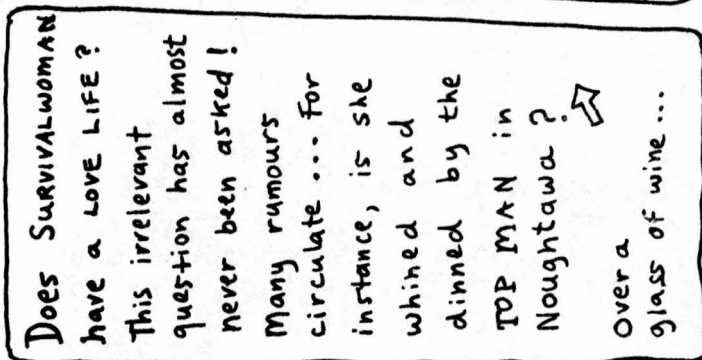 Does SURVIVALWOMAN
have a LOVE LIFE?
This irrelevant
question has almost
never been asked!
Many rumours
circulate... For
instance, is she
whined and
dinned by the
TOP MAN in
Noughtawa?
Over a
glass of wine...